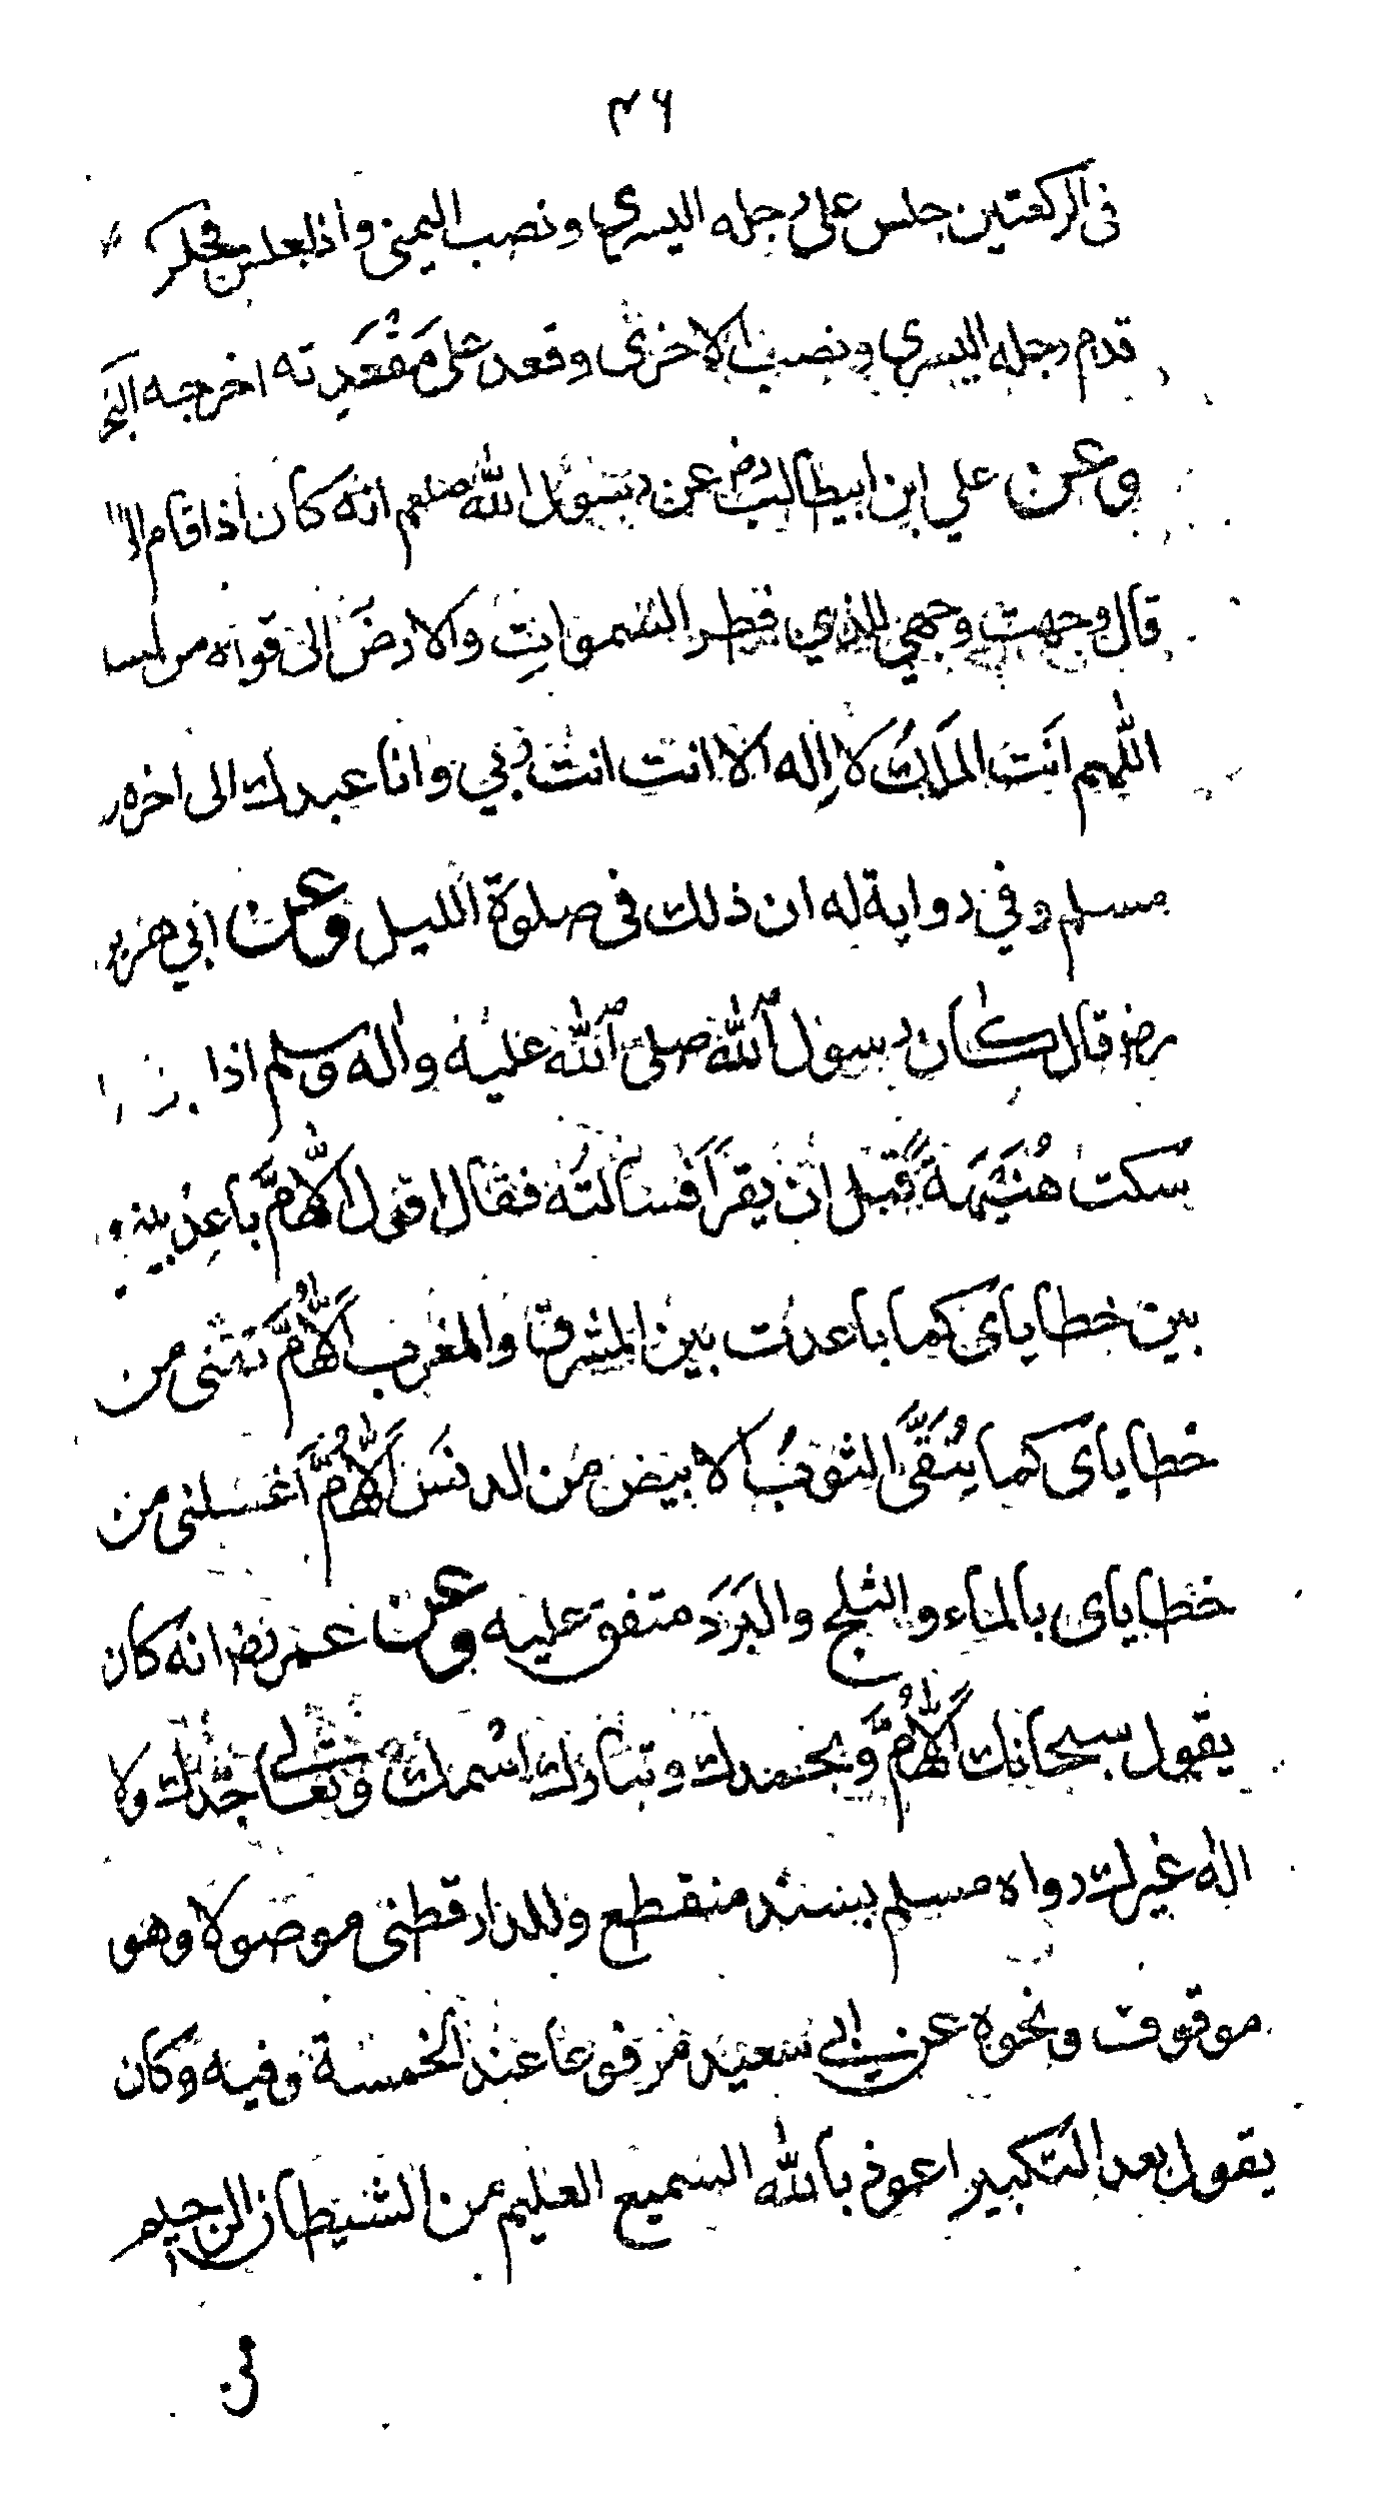 ٤٦
فى الركعتين جلس على رجله اليسرى ونصب اليمنى واذا جلس فى
قدم رجله اليسرى ونصب الاخرى وقعد على مَقْعَدِته اخرجه
وعن علي ابن ابيطالب رض عن رسول الله صلعم انه كان اذا قام
قال وجهت وجهي للذي فطر السموات والارض الى قوله من
اللهم انت الملك لا إله الا انت انت ربي وانا عبدك الى اخره
مسلم وفي رواية له ان ذلك فى صلوة الليل وعن ابي
رضـ قال كان رسول الله صلى الله عليه واله وسلم اذا
سكت هُنَيْهَةً قبل ان يقرأ فسالته فقال اقول اللّهُمَّ باعِد بينى و
بين خطاياى كما باعدت بين المشرق والمغرب اللّهُمَّ نقنى من
خطاياى كما يُنَقَّى الثوبُ الابيض من الدنس اللّهُمَّ اغسلنى من
خطاياى بالماء والثلج والبَرَد متفق عليه وعن عمر رضـ انه كان
يقول سبحانك اللّهُمَّ وبحمدك وتبارك اسمك وتعالى جدك ولا
اله غيرك رواه مسلم بسند منقطع وللدار قطنى موصولا وهو
موقوف ونحوه عن ابي سعيد مرفوعا عند الخمسة وفيه وكان
يقول بعد التكبير اعوذ بالله السميع العليم من الشيطان الرجيم